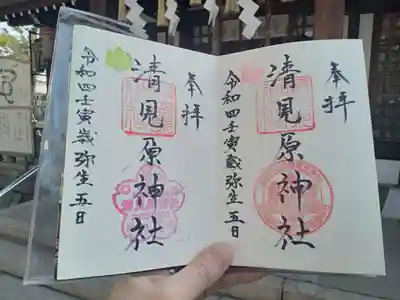 奉拝
清見原神社
令和四壬寅歳弥生五日
奉拝
清見原神社
令和四壬寅歳弥生五日